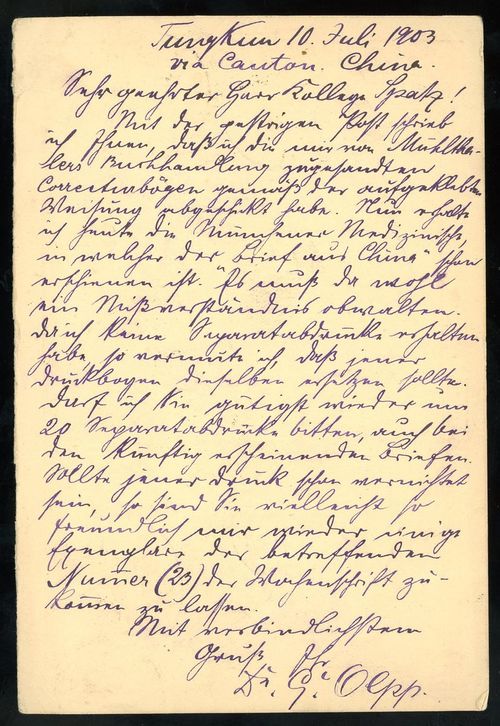 Tungkun 10. Juli 1903
via Canton. China.
Sehr geehrter Herr Kollege Spatz!
Mit der gestrigen Post schrieb
ich Ihnen, daß ich die mir von Mühltha-
lers Buchhandlung zugesandten
Correcturbögen gemäß der aufgeklebten
Weisung abgeschickt habe. Nun erhalte
ich heute die Münchener Medizinische,
in welcher der Brief aus China" schon
erschienen ist. Es muß da wohl
ein Mißverständnis obwalten.
Da ich keine Separatabdrücke erhalten
habe, so vermute ich, daß jener
Druckbogen dieselben ersetzen sollte.
Darf ich Sie gütigst wieder um
20 Separatabdrücke bitten, auch bei
den künftig erscheinenden Briefen.
Sollte jener Druck schon vernichtet
sein, so sind Sie vielleicht so
freundlich mir wieder einige
Exemplare der betreffenden
Nummer (23) der Wochenschrift zu-
kommen zu lassen.
Mit verbindlichstem
Gruß Ihr
Dr. G. Olpp.